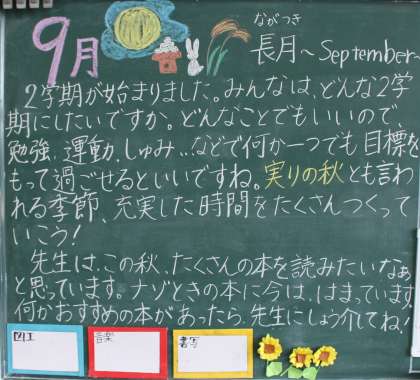 9月
ながつき
長月～September～
2学期が始まりました。みんなは、どんな2学
期にしたいですか。どんなことでもいいので、
勉強、運動、しゅみ…などで何か一つでも目標を
もって過ごせるといいですね。実りの秋とも言わ
れる季節、充実した時間をたくさんつくって
いこう！
先生は、この秋、たくさんの本を読みたいなぁ
と思っています。ナゾときの本に今は、はまっています。
何かおすすめの本があったら、先生にしょう介してね！
図工
音楽
書写